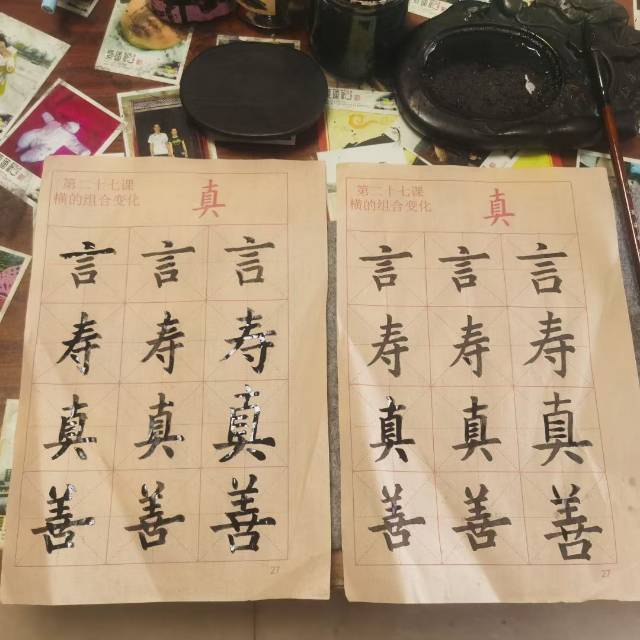 第二十七课
横的组合变化
真
言言言
寿寿寿
真真真
善善善
27
第二十七课
横的组合变化
真
言言言
寿寿寿
真真真
善善善
27